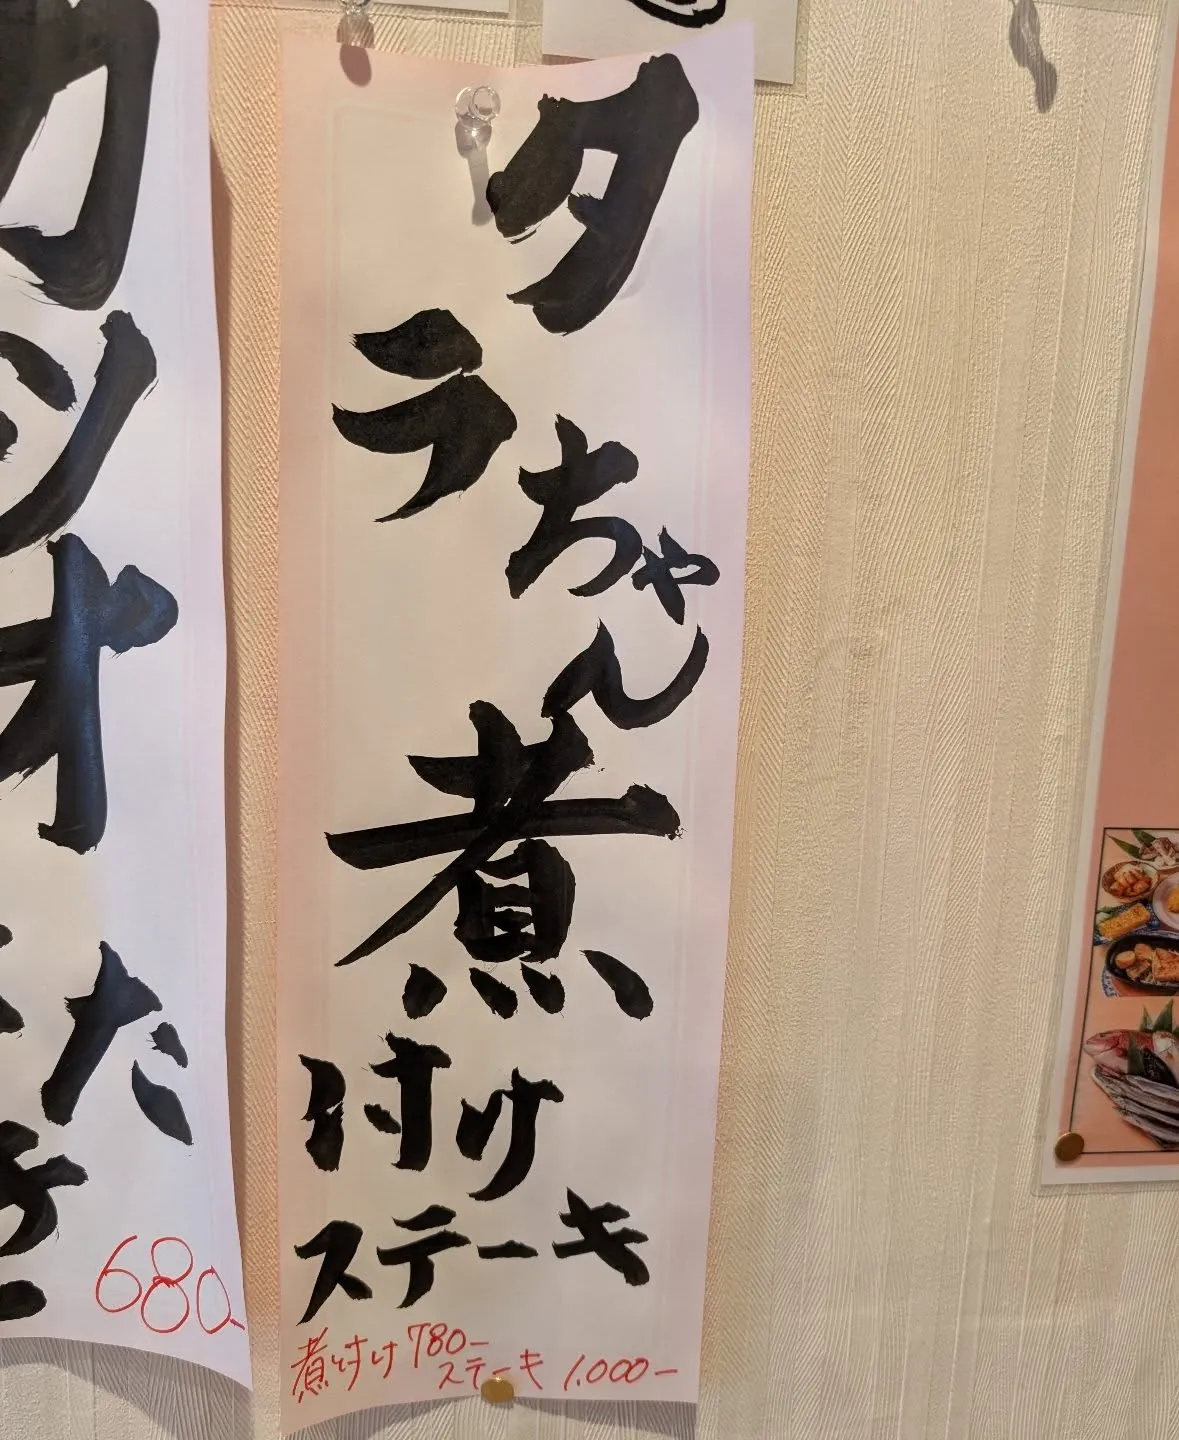 タラちゃん
煮付け
ステーキ
煮付け 780-
ステーキ 1,000-
カツオ
たたき
680-